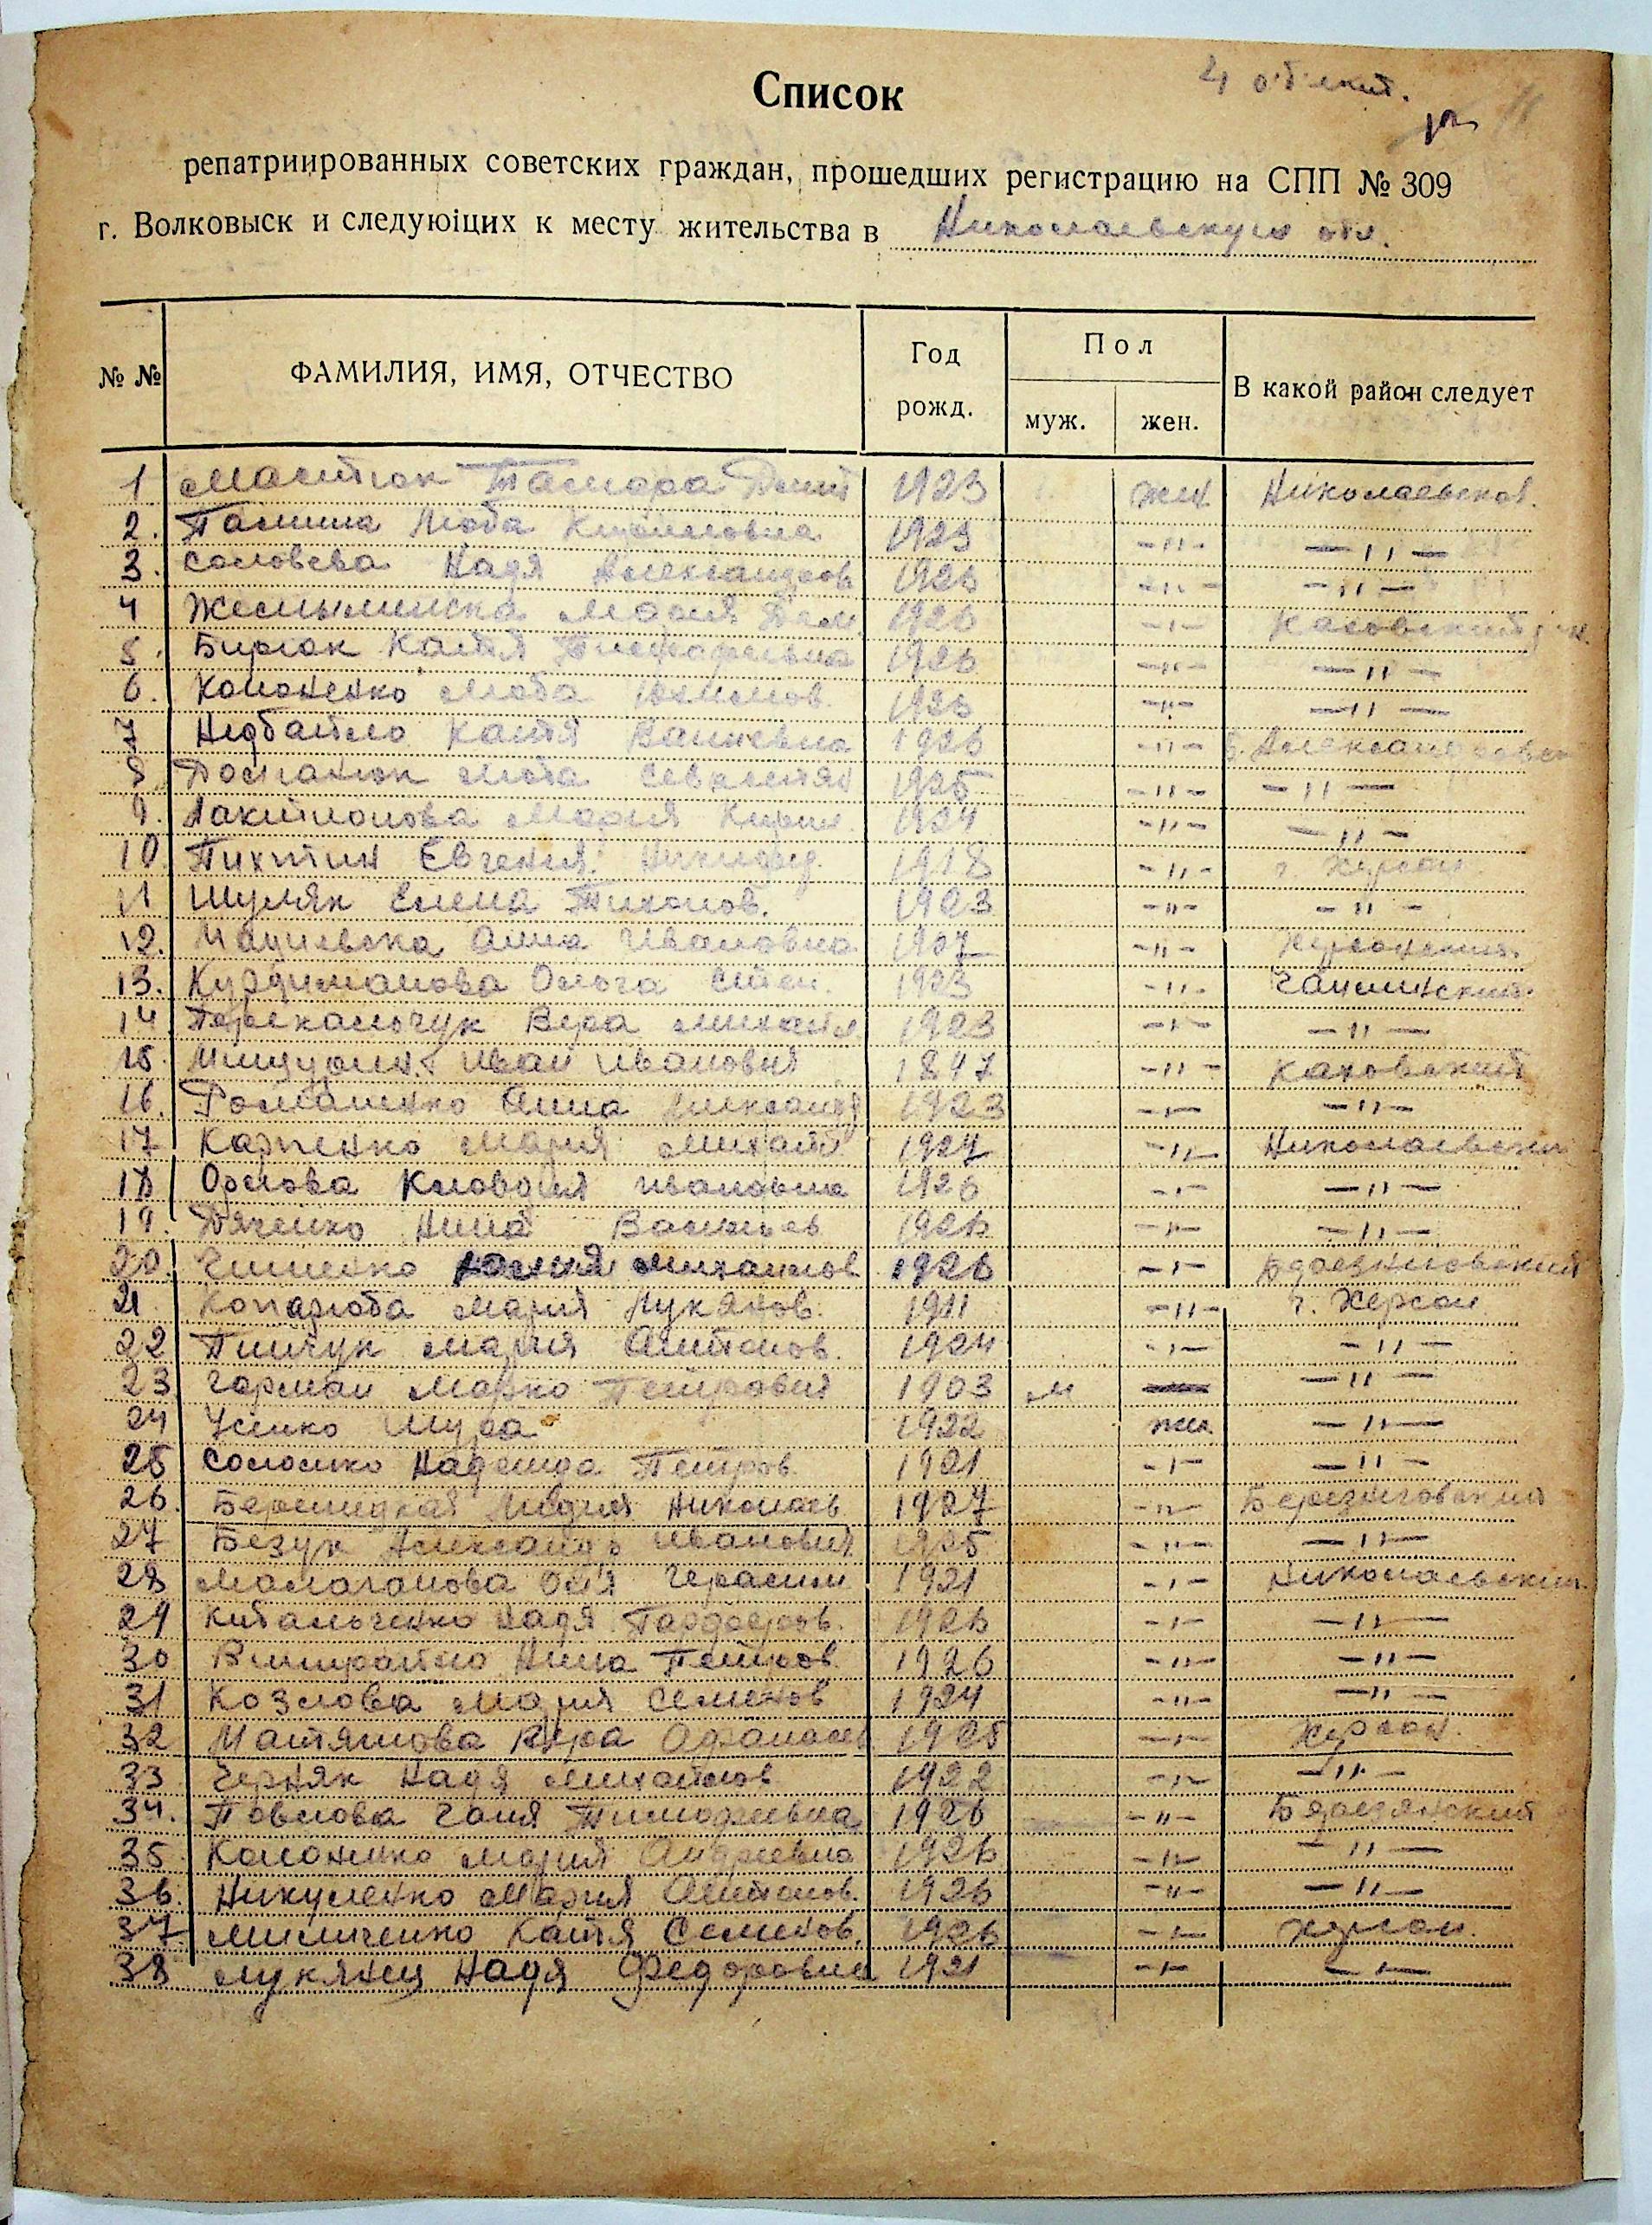 4 объект.
Список
репатриированных советских граждан, прошедших регистрацию на СПП № 309
г. Волковыск и следующих к месту жительства в Николаевскую обл.
№ № ФАМИЛИЯ, ИМЯ, ОТЧЕСТВО Год рожд. Пол муж. жен. В какой район следует
1 Мастюк Тамара Дмит 1923 жен Николаевской.
2. Палиша Люба Кирилловна 1923 -"- -"-
3. Соловева Надя Александров 1926 -"- -"-
4 Мария Дем 1926 -"-
5. Бирюк Катя 1926 -"- -"-
6. Кононенко Люба 1926 -"- -"-
7 Недбайло Катя 1926 -"-
8. Романюк Люба 1925 -"- -"-
9. Лактионова Мария Кирил. 1924 -"- -"-
10. Евгения Никифор. 1918 -"- г Херсон
11 Шуляк Елена Тихонов. 1923 -"- -"-
12. Мациевска Анна Ивановна 1907 -"-
13. Курдиманова Ольга Степ. 1923 -"-
14. Перекальчук Вера Михайл 1923 -"- -"-
15. Иван Иванович 1897 -"- Каховский
16. Романенко Анна Александр 1923 -"- -"-
17 Карпенко Мария Михайл 1924 -"- Николаевский
18 Орлова Кловдия Ивановна 1926 -"- -"-
19. Дяченко Нина Васильев 1926 -"- -"-
20. Михайлов 1926 -"-
21. Копарюба Мария Лукянов. 1911 -"- г. Херсон
22 Пинчук Мария Антонов. 1924 -"- -"-
23 Гарман Марко Петрович 1903 м -"-
24 Усенко Шура 1922 жен. -"-
25 Соломко Надежда Петров. 1921 -"- -"-
26. Лидия Николаев 1927 -"- Березнеговский
27 Безук Александр Иванович 1925 -"- -"-
28 Маматанова Оля Герасим 1921 -"- Николаевский.
29 Надя 1926 -"- -"-
30 Нина Петров. 1926 -"- -"-
31 Козлова Мария Семенов 1924 -"- -"-
32 Матяшова Вера Афанасев 1925 -"- Херсон.
33 Черняк Надя Михайлов 1922 -"- -"-
34. Повлова Галя Тимофеевна 1926 -"-
35 Колоненко Мария Андреевна 1926 -"- -"-
36. Никуленко Мария Антонов. 1926 -"- -"-
37 Мильченко Катя Семенов. 1926 -"- Херсон.
38 Лукянец Надя Федоровна 1921 -"- -"-